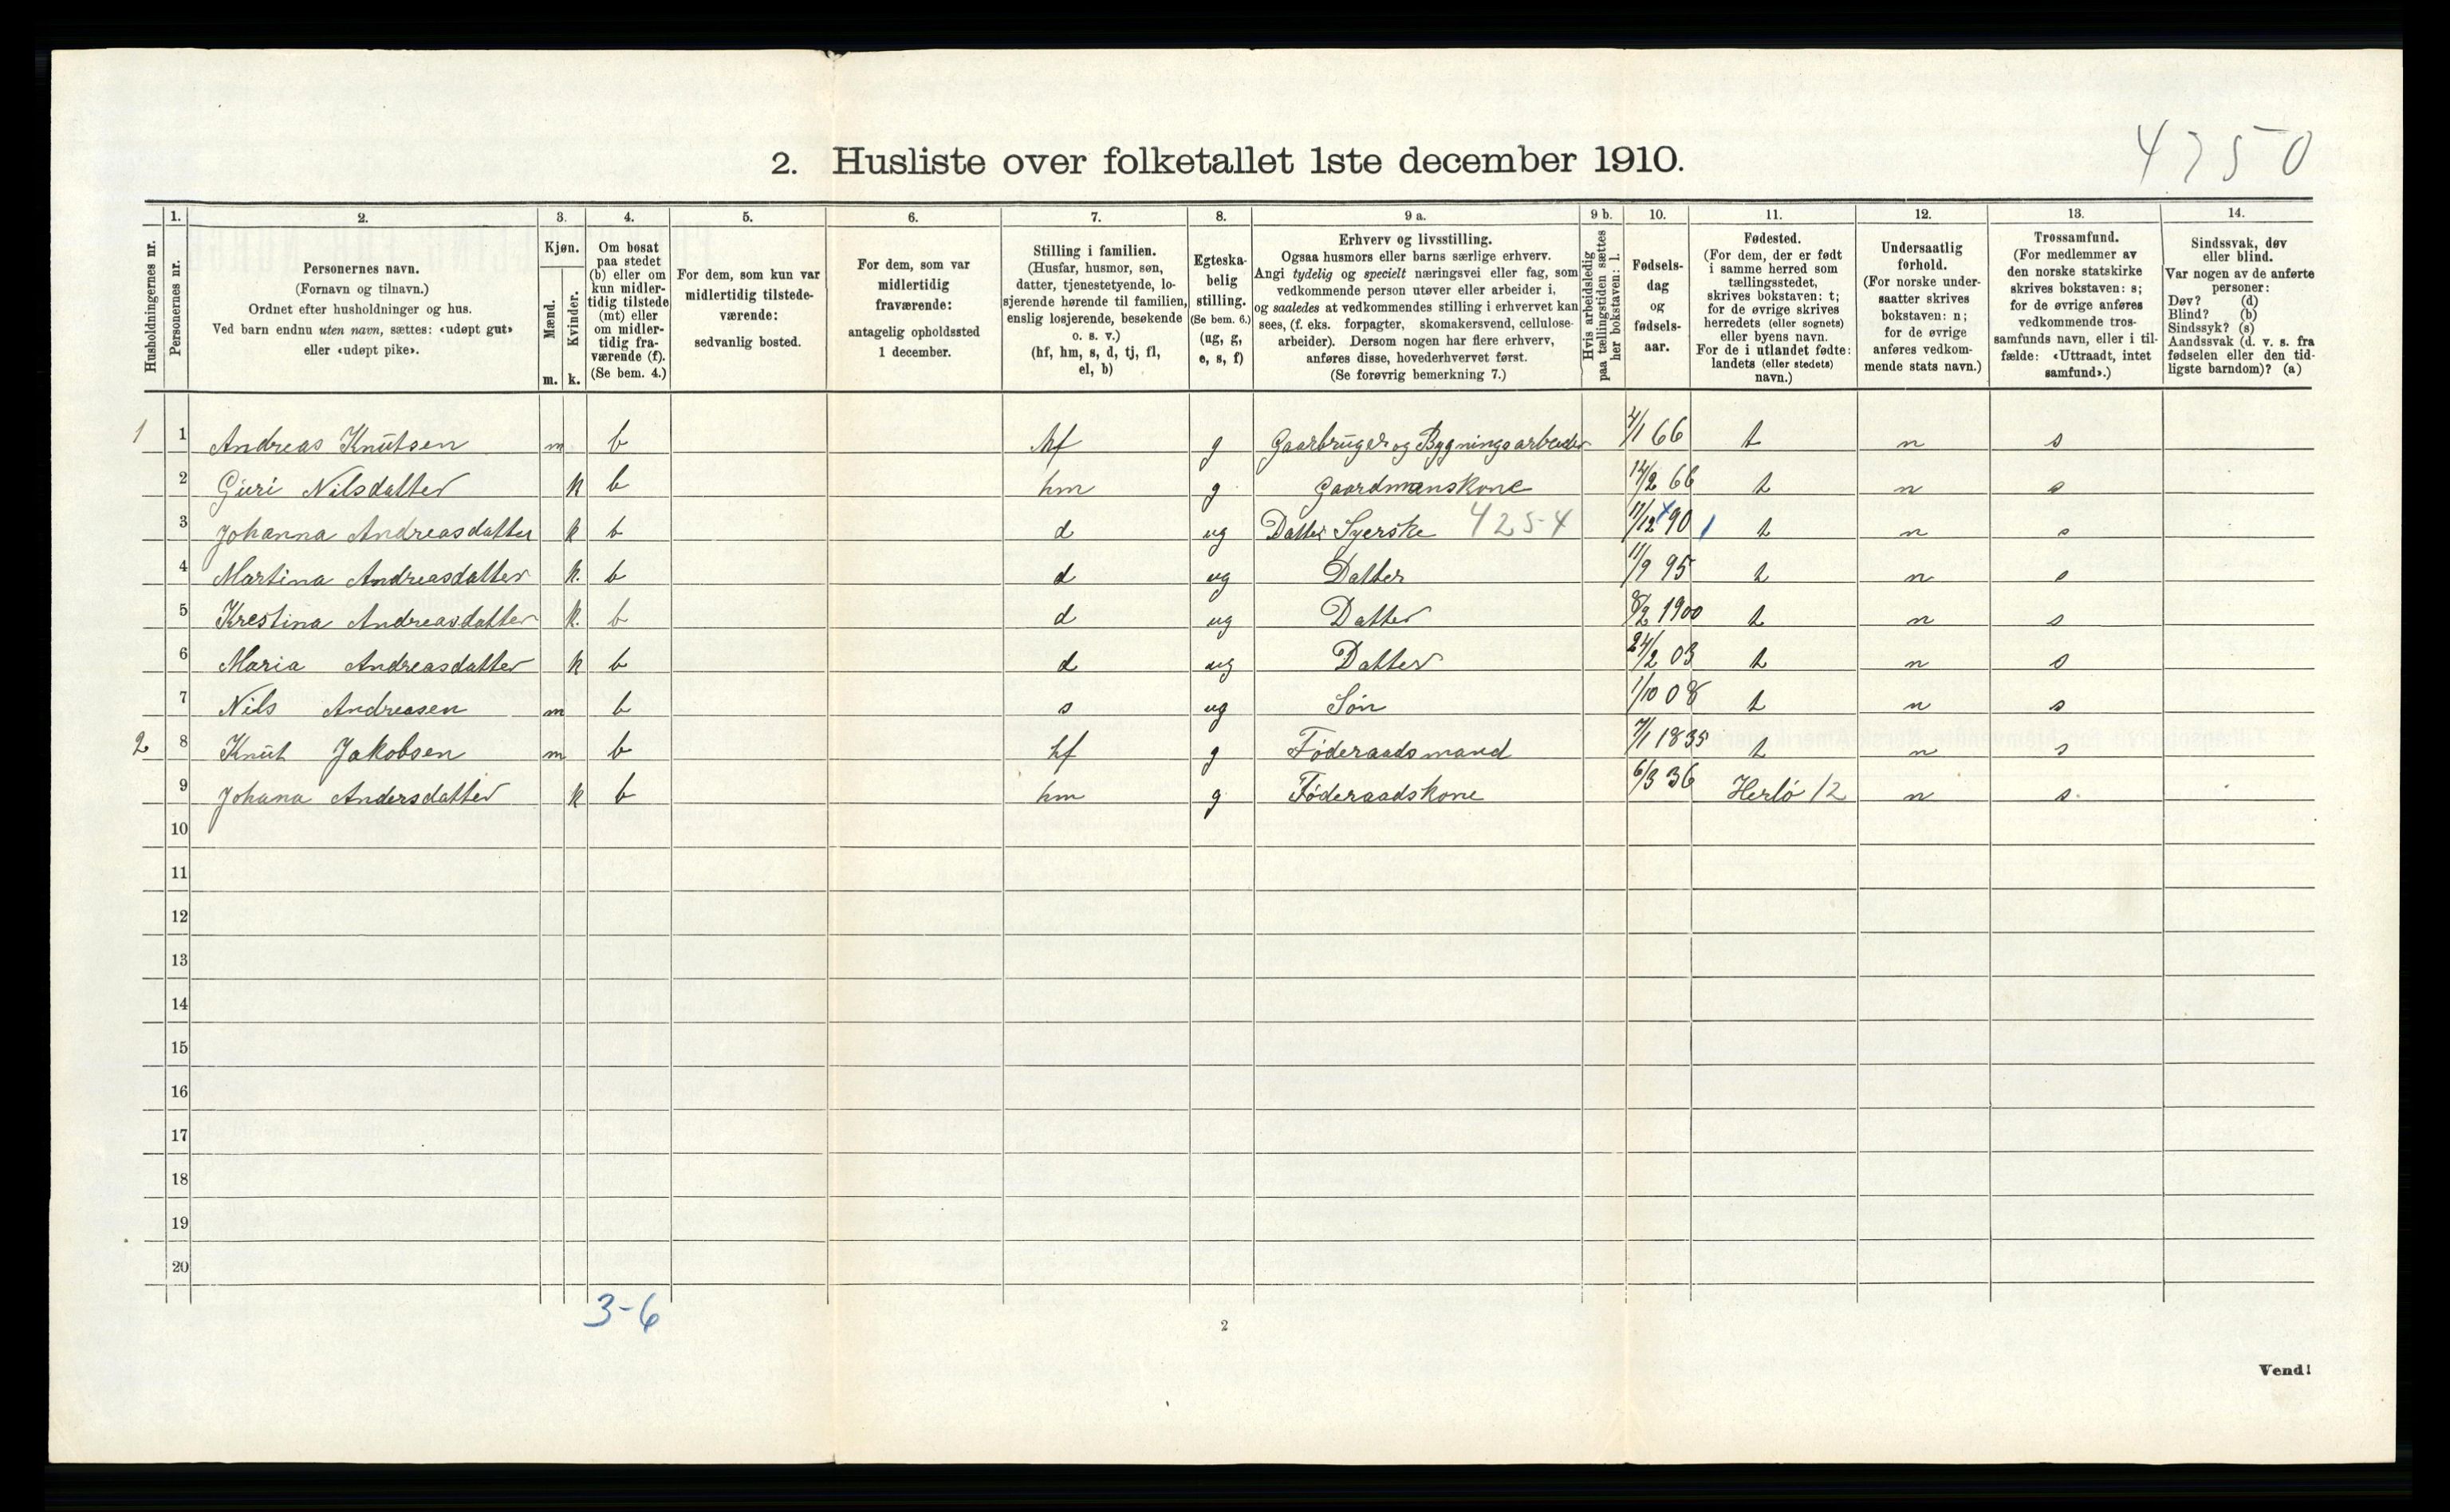 4250
2. Husliste over folketallet 1ste december 1910.
Husholdningernes nr.
1.
Personernes nr.
2.
Personernes navn.
(Fornavn og tilnavn.)
Ordnet efter husholdninger og hus.
Ved barn endnu uten navn, sættes: «udøpt gut»
eller «udøpt pike».
3.
Kjøn.
Mænd.
Kvinder.
m. k.
4.
Om bosat
paa stedet
(b) eller om
kun midler-
tidig tilstede
(mt) eller
om midler-
tidig fra-
værende (f).
(Se bem. 4.)
5.
For dem, som kun var
midlertidig tilstede-
værende:
sedvanlig bosted.
6.
For dem, som var
midlertidig
fraværende:
antagelig opholdssted
1 december.
7.
Stilling i familien.
(Husfar, husmor, søn,
datter, tjenestetyende, lo-
sjerende hørende til familien,
enslig losjerende, besøkende
o. s. v.)
(hf, hm, s, d, tj, fl,
el, b)
8.
Egteska-
belig
stilling.
(Se bem. 6.)
(ug, g,
e, s, f)
9 a.
Erhverv og livsstilling.
Ogsaa husmors eller barns særlige erhverv.
Angi tydelig og specielt næringsvei eller fag, som
vedkommende person utøver eller arbeider i,
og saaledes at vedkommendes stilling i erhvervet kan
sees, (f. eks. forpagter, skomakersvend, cellulose-
arbeider). Dersom nogen har flere erhverv,
anføres disse, hovederhvervet først.
(Se forøvrig bemerkning 7.)
9 b.
Hvis arbeidsledig
paa tællingstiden sættes
her bokstaven: l.
10.
Fødsels-
dag
og
fødsels-
aar.
11.
Fødested.
(For dem, der er født
i samme herred som
tællingsstedet,
skrives bokstaven: t;
for de øvrige skrives
herredets (eller sognets)
eller byens navn.
For de i utlandet fødte:
landets (eller stedets)
navn.)
12.
Undersaatlig
forhold.
(For norske under-
saatter skrives
bokstaven: n;
for de øvrige
anføres vedkom-
mende stats navn.)
13.
Trossamfund.
(For medlemmer av
den norske statskirke
skrives bokstaven: s;
for de øvrige anføres
vedkommende tros-
samfunds navn, eller i til-
fælde: «Uttraadt, intet
samfund».)
14.
Sindssvak, døv
eller blind.
Var nogen av de anførte
personer:
Døv? (d)
Blind? (b)
Sindssyk? (s)
Aandssvak (d. v. s. fra
fødselen eller den tid-
ligste barndom)? (a)
1 1 Andreas Knutsen m b hf g Gaarbruger og Bygningsarbeider 4/1 66 t n s
2 Guri Nilsdatter k b hm g Gaardmanskone 14/2 66 t n s
3 Johanna Andreasdatter k b d ug Datter Syerske 4254 17/12 90 1 t n s
4 Martina Andreasdatter k. b d ug Datter 11/9 95 t n s
5 Krestina Andreasdatter k. b d ug Datter 8/2 1900 t n s
6 Maria Andreasdatter k b d ug Datter 24/2 03 t n s
7 Nils Andreasen m b s ug Søn 1/10 08 t n s
2 8 Knut Jakobsen m b hf g Føderaadsmand 7/1 1835 t n s
9 Johana Andersdatter k b hm g Føderaadskone 6/3 36 Herlø 12 n s.
10
11
12
13
14
15
16
17
18
19
20
3-6
2
Vend!